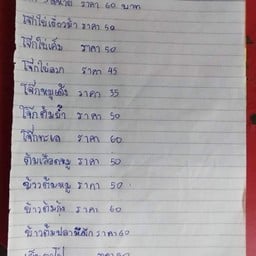 ราคา 60 บาท
โจ๊กไข่เยี่ยวม้า ราคา 50
โจ๊กไข่เค็ม ราคา 50
โจ๊กไข่ลวก ราคา 45
โจ๊กหมูเด้ง ราคา 35
โจ๊ก ราคา 50
โจ๊กทะเล ราคา 60
ต้มเลือดหมู ราคา 50
ข้าวต้มหมู ราคา 50
ข้าวต้มกุ้ง ราคา 60
ข้าวต้มปลาหมึก ราคา 60
ราคา 50